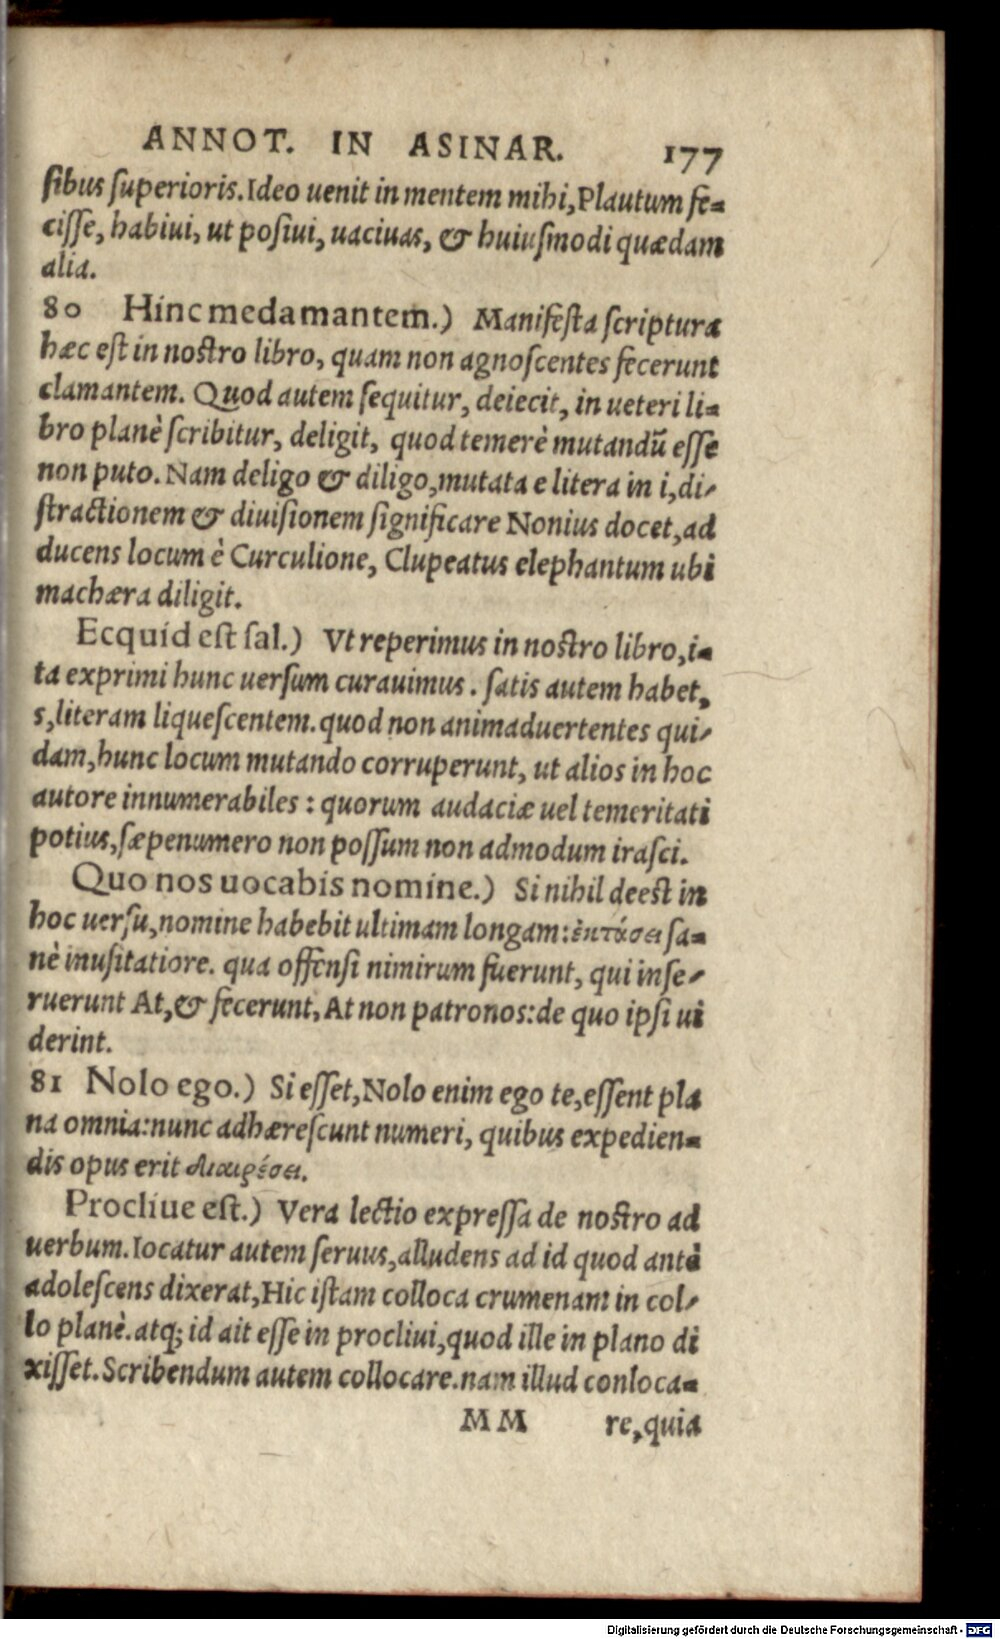 ANNOT. IN ASINAR. 177
ſibus ſuperioris. Ideo uenit in mentem mihi, Plautum fe-
ciſſe, habiui, ut poſiui, uaciuas, & huiuſmodi quædam
alia.
80 Hinc med amantem.) Manifeſta ſcriptura
hæc eſt in noſtro libro, quam non agnoſcentes fecerunt
clamantem. Quod autem ſequitur, deiecit, in ueteri li-
bro planè ſcribitur, deligit, quod temerè mutandũ eſſe
non puto. Nam deligo & diligo, mutata e litera in i, di-
ſtractionem & diuiſionem ſignificare Nonius docet, ad
ducens locum è Curculione, Clupeatus elephantum ubi
machæra diligit.
Ecquid eſt ſal.) Vt reperimus in noſtro libro, i-
ta exprimi hunc uerſum curauimus. ſatis autem habet,
s, literam liqueſcentem. quod non animaduertentes qui-
dam, hunc locum mutando corruperunt, ut alios in hoc
autore innumerabiles: quorum audaciæ uel temeritati
potius, ſæpenumero non poſſum non admodum iraſci.
Quo nos uocabis nomine.) Si nihil deeſt in
hoc uerſu, nomine habebit ultimam longam: ἐκτάσει ſa-
nè inuſitatiore. qua offenſi nimirum fuerunt, qui inſe-
ruerunt At, & fecerunt, At non patronos: de quo ipſi ui
derint.
81 Nolo ego.) Si eſſet, Nolo enim ego te, eſſent pla
na omnia: nunc adhæreſcunt numeri, quibus expedien-
dis opus erit διαιρέσει.
Procliue eſt.) Vera lectio expreſſa de noſtro ad
uerbum. Iocatur autem ſeruus, alludens ad id quod antè
adoleſcens dixerat, Hic iſtam colloca crumenam in col-
lo planè. atq; id ait eſſe in procliui, quod ille in plano di
xiſſet. Scribendum autem collocare. nam illud conloca-
MM re, quia
Digitalisierung gefördert durch die Deutsche Forschungsgemeinschaft - DFG